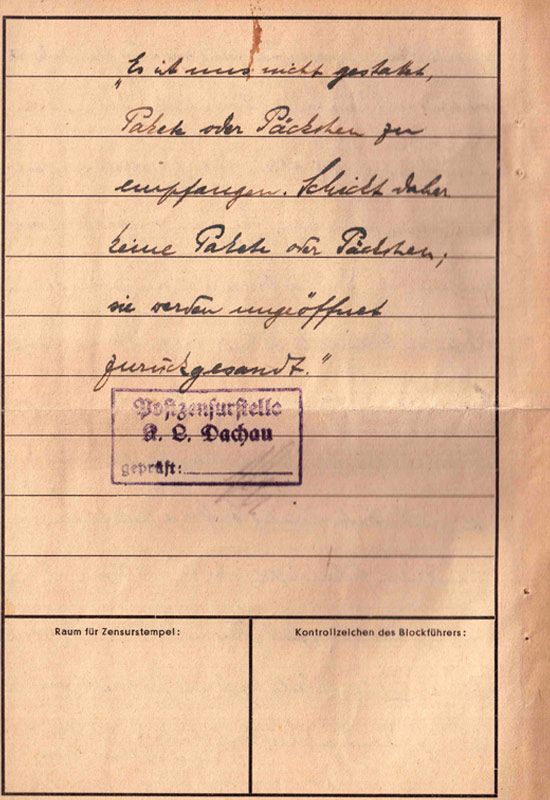 „Es ist uns nicht gestattet,
Pakete oder Päckchen zu
empfangen. Schickt daher
keine Pakete oder Päckchen,
sie werden ungeöffnet
zurückgesandt.“
Postzensurstelle
K. L. Dachau
geprüft:
Raum für Zensurstempel:
Kontrollzeichen des Blockführers: